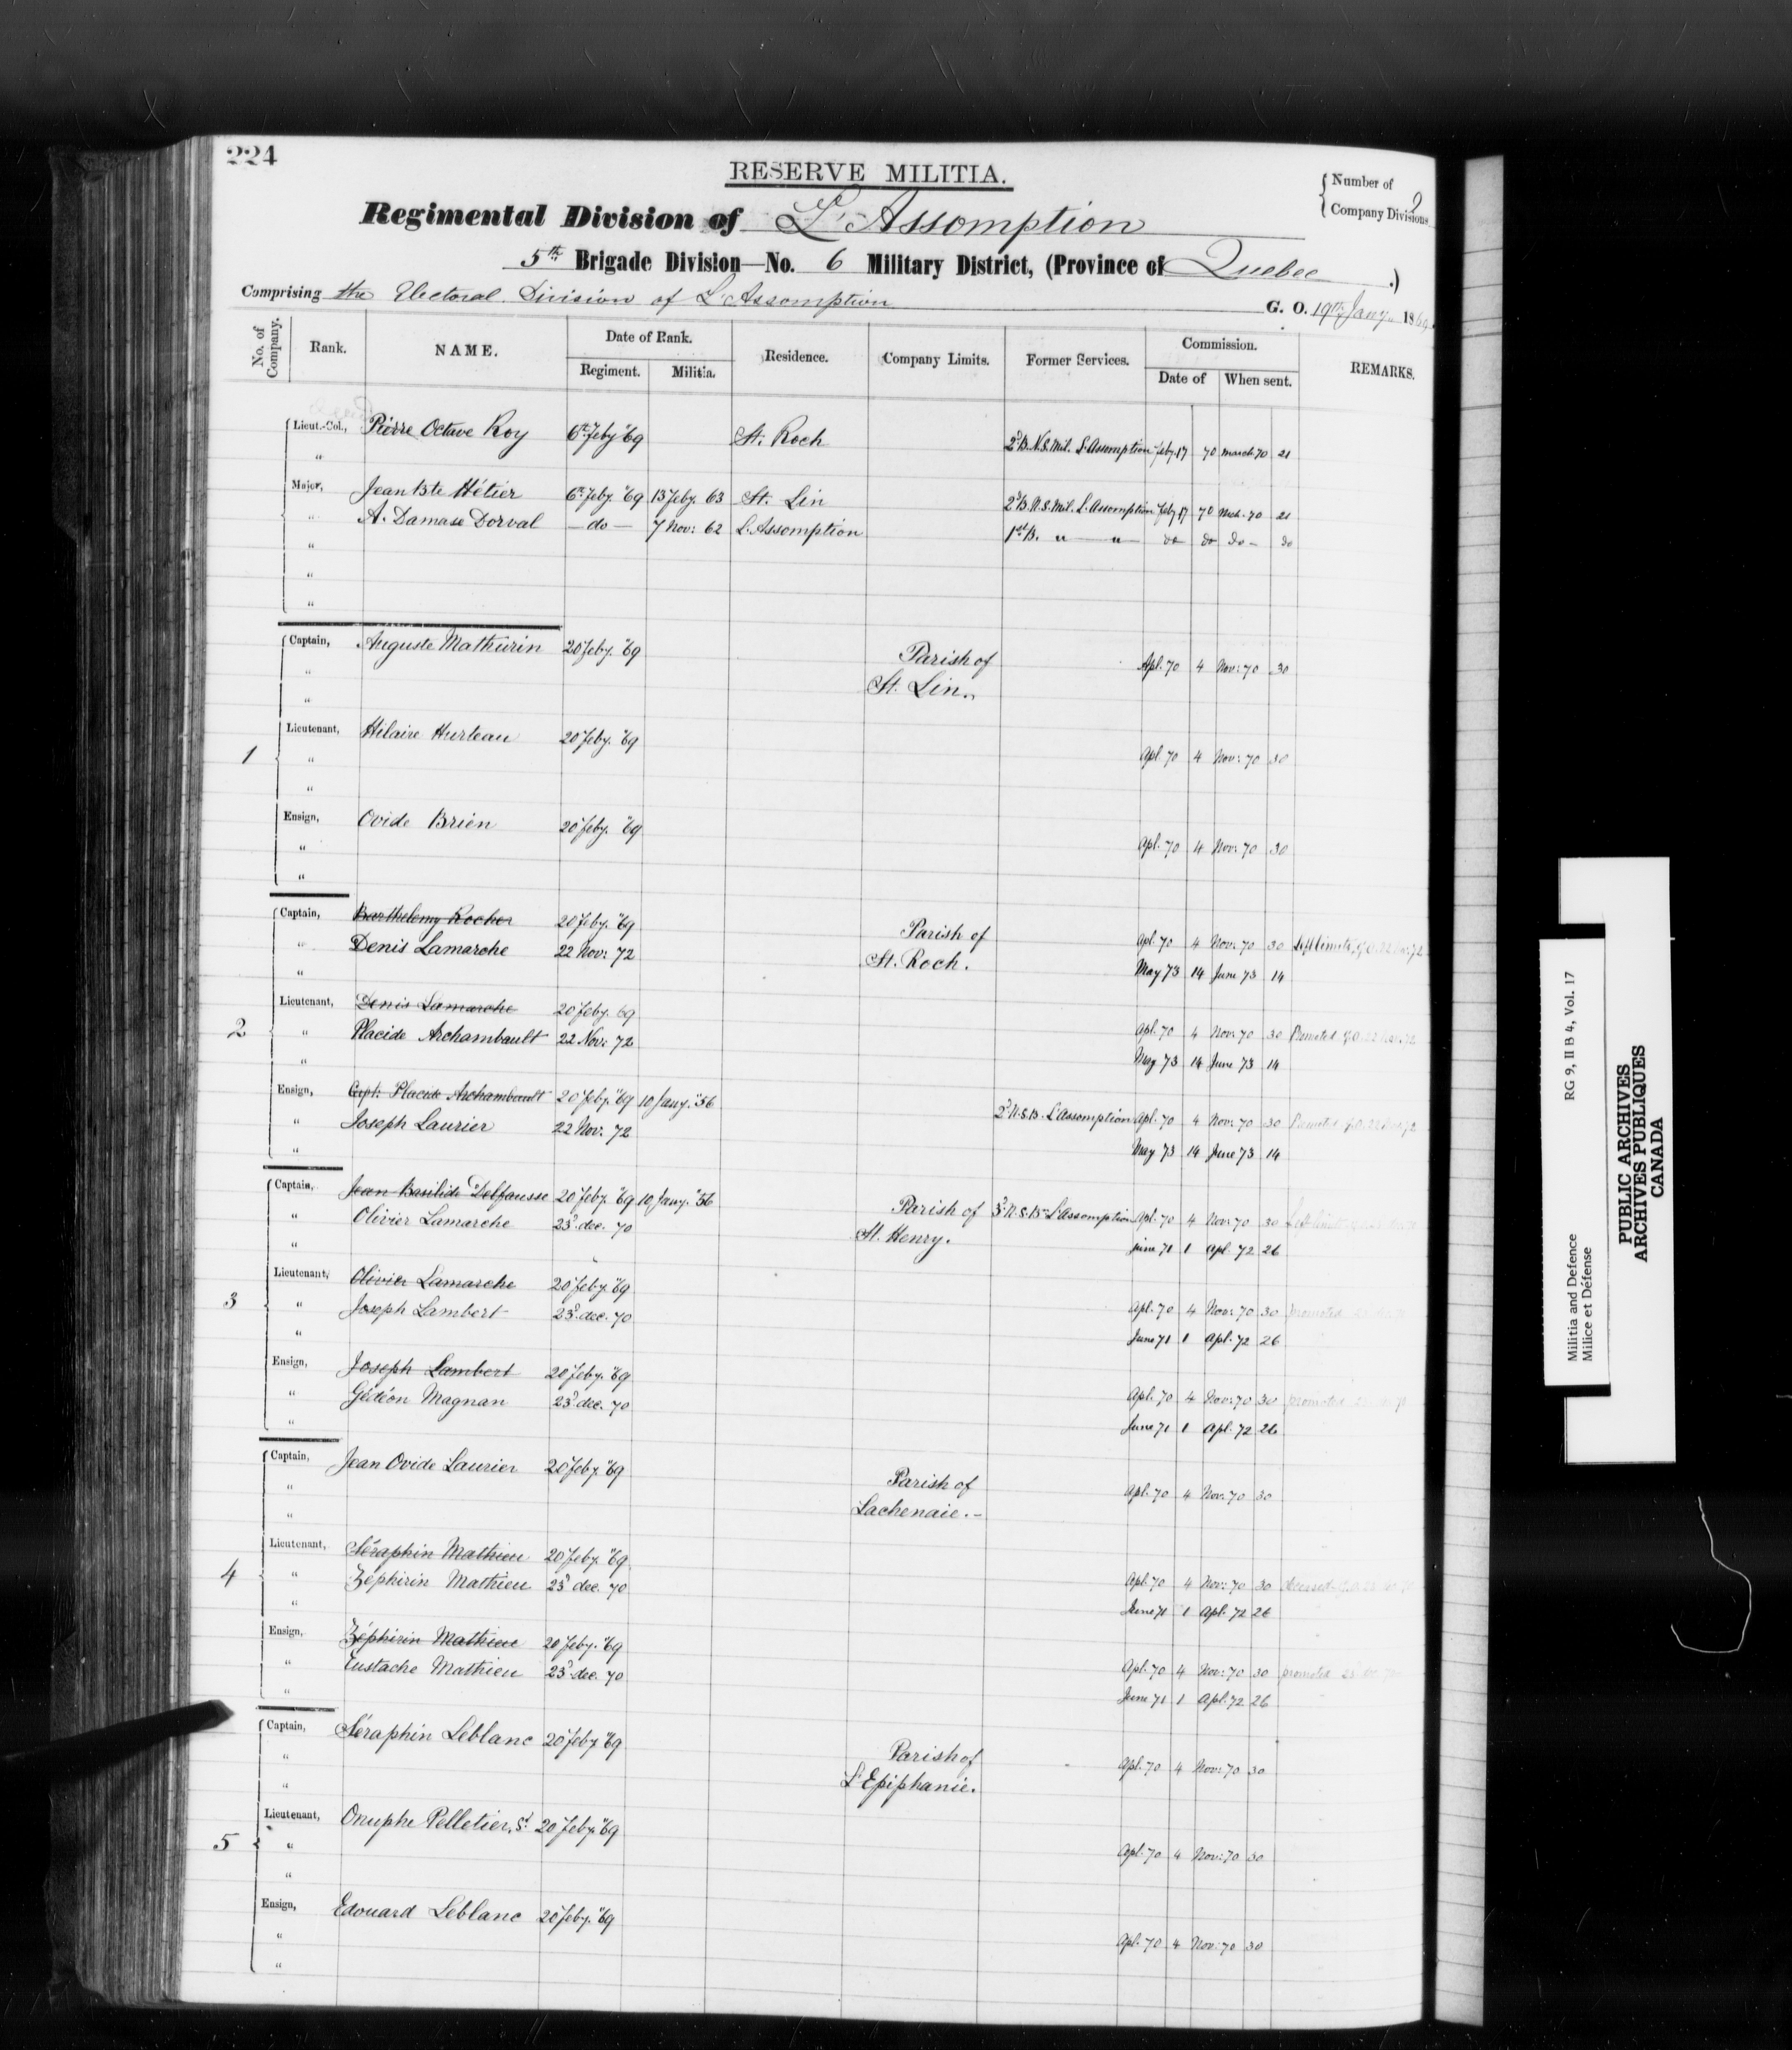 224
RESERVE MILITIA.
Number of Company Divisions 9
Regimental Division of L'Assomption
5th Brigade Division—No. 6 Military District, (Province of Quebec.)
Comprising the Electoral Division of L'Assomption G. O. 19th Jany. 1869.
No. of Company. Rank. NAME. Date of Rank. Regiment. Militia. Residence. Company Limits. Former Services. Commission. Date of When sent. REMARKS.
Lieut.-Col., Pierre Octave Roy 6th Feby "69 St. Roch 2d B. N.S. Mil. L'Assomption Feby. 17 70 March 70 21
"
Major, Jean Bte Hétier 6th Feby "69 13 Feby. 63 St. Lin 2d B. N.S. Mil. L'Assomption Feby 17 70 Mch. 70 21
" A. Damase Dorval — do — 7 Nov: 62 L'Assomption 1st B. " — " do do do — do
"
"
"
Captain, Auguste Mathurin 20 Feby. "69 Parish of Apl. 70 4 Nov: 70 30
" St. Lin.
"
1 Lieutenant, Hilaire Hurteau 20 Feby. "69 Apl. 70 4 Nov: 70 30
"
"
Ensign, Ovide Brien 20 Feby. "69 Apl. 70 4 Nov: 70 30
"
"
Captain, Barthelemy Rocher 20 Feby. "69 Parish of Apl. 70 4 Nov: 70 30 Left limits, G.O. 22 Nov. 72
" Denis Lamarche 22 Nov: 72 St. Roch. May 73 14 June 73 14
"
2 Lieutenant, Denis Lamarche 20 Feby. 69 Apl. 70 4 Nov: 70 30 Promoted G.O. 22 Nov. 72
" Placide Archambault 22 Nov: 72 May 73 14 June 73 14
"
Ensign, Capt. Placide Archambault 20 Feby. "69 10 Jany. "56 2d N.S.B. L'Assomption Apl. 70 4 Nov: 70 30 Promoted G.O. 22 Nov 72
" Joseph Laurier 22 Nov: 72 May 73 14 June 73 14
"
Captain, Jean Basilide Delfausse 20 Feby. "69 10 Jany. "56 Parish of 3d N.S. Bn L'Assomption Apl. 70 4 Nov: 70 30 Left limits
" Olivier Lamarche 23d dec. 70 St. Henry. June 71 1 Apl. 72 26
"
3 Lieutenant, Olivier Lamarche 20 Feby. "69 Apl. 70 4 Nov: 70 30 promoted
" Joseph Lambert 23d dec. 70 June 71 1 Apl. 72 26
"
Ensign, Joseph Lambert 20 Feby. "69 Apl. 70 4 Nov: 70 30 promoted
" Gédéon Magnan 23d dec. 70 June 71 1 Apl. 72 26
"
Captain, Jean Ovide Laurier 20 Feby. "69 Parish of Apl. 70 4 Nov: 70 30
" Lachenaie.–
"
4 Lieutenant, Séraphin Mathieu 20 Feby. "69 Apl. 70 4 Nov: 70 30 deceased
" Zéphirin Mathieu 23d dec. 70 June 71 1 Apl. 72 26
"
Ensign, Zéphirin Mathieu 20 Feby. "69 Apl. 70 4 Nov: 70 30 promoted 23d
" Eustache Mathieu 23d dec. 70 June 71 1 Apl. 72 26
"
Captain, Séraphin Leblanc 20 Feby "69 Parish of Apl. 70 4 Nov: 70 30
" L'Epiphanie.
"
5 Lieutenant, Onuphe Pelletier, Sr 20 Feby. "69 Apl. 70 4 Nov: 70 30
"
"
Ensign, Edouard Leblanc 20 Feby. "69 Apl. 70 4 Nov: 70 30
"
"
Militia and Defence RG 9, II B 4, Vol. 17
Milice et Défense
PUBLIC ARCHIVES
ARCHIVES PUBLIQUES
CANADA